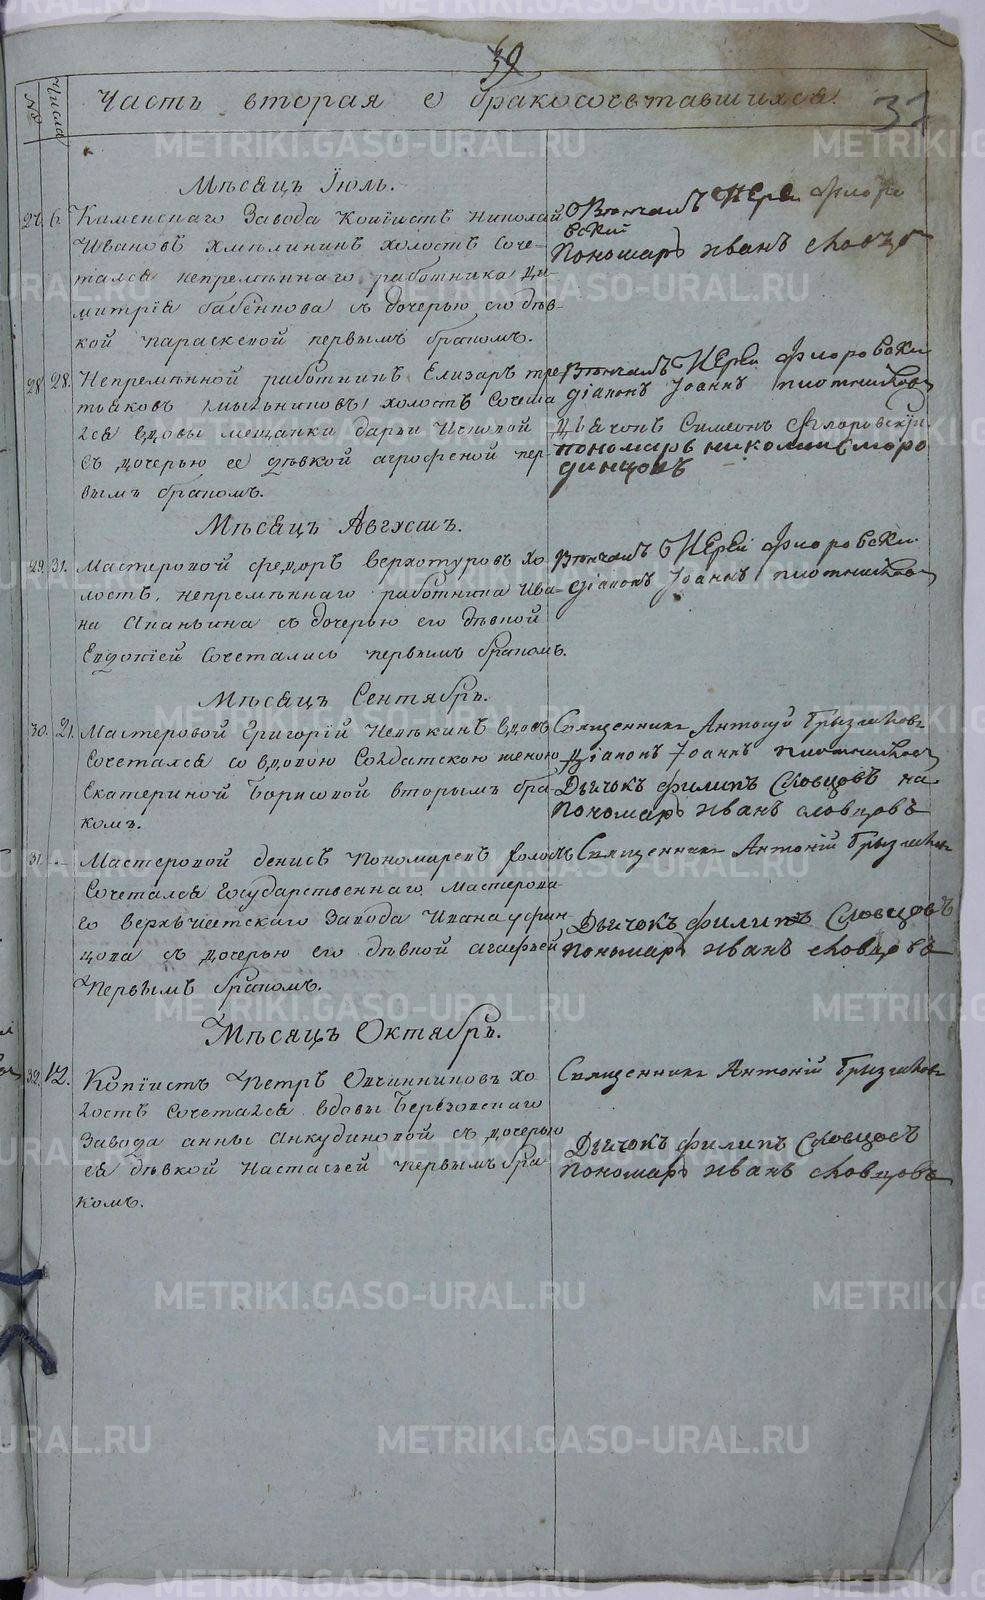 39
32
Часть вторая о бракосочетавшихся.
№
Числа
Мѣсяцъ Іюль.
27. 6. Каменскаго Завода Копіистъ Николай
Ивановъ Хмѣлининъ холостъ соче-
тался непремѣннаго работника Ди-
митрія Бабенкова съ дочерью его дѣв-
кой Параскевой первымъ бракомъ.
Вѣнчалъ Іерей Флоро
вскій
Пономарь Иванъ Словцов
28. 28. Непремѣнной работникъ Елизаръ Тре-
тьяковъ (Мыльниковъ) холостъ Сочета
лся вдовы мещанки Дарьи
съ дочерью ее дѣвкой Агрофеной пер
вымъ бракомъ.
Вѣнчалъ Іерей Флоровски
діаконъ Іоаннъ Плотников
Дьячокъ Симеонъ Флоровскій
пономарь Николай Сморо
динцовъ
Мѣсяцъ Августъ.
29. 31. Мастеровой Федоръ Верхотуровъ хо-
лостъ, непремѣннаго работника Ива-
на Ананьина съ дочерью его дѣвкой
Евдокіей Сочетались первымъ бракомъ.
Вѣнчалъ Іерей Флоровски
діаконъ Іоаннъ Плотников
Мѣсяцъ Сентябрь.
30. 21. Мастеровой Григорій вдовъ
Сочетался со вдовою Солдатскою женою
Екатериной Борисовой вторымъ бра
комъ.
Священникъ Антоній Брызгаловъ
Діаконъ Іоаннъ Плотников
Дьячокъ Филипъ Словцовъ
Пономарь Иванъ Словцовъ
31. - Мастеровой Денисъ Пономаревъ холостъ
Сочетался Государственнаго Мастерова-
го Верхъисетскаго Завода Ивана Уфин-
цова съ дочерью его дѣвкой Агафьей
Первымъ бракомъ.
Священникъ Антоній Брызгаловъ
Дьячокъ Филипъ Словцовъ
Пономарь Иванъ Словцовъ
Мѣсяцъ Октябрь.
32. 12. Копіистъ Петръ Овчинниковъ хо-
лостъ Сочетался вдовы Березовскаго
Завода Анны Анкудиновой съ дочерью
ея дѣвкой Настасьей первымъ бра
комъ.
Священникъ Антоній Брызгаловъ
Дьячокъ Филипъ Словцовъ
Пономарь Иванъ Словцовъ
METRIKI.GASO-URAL.RU